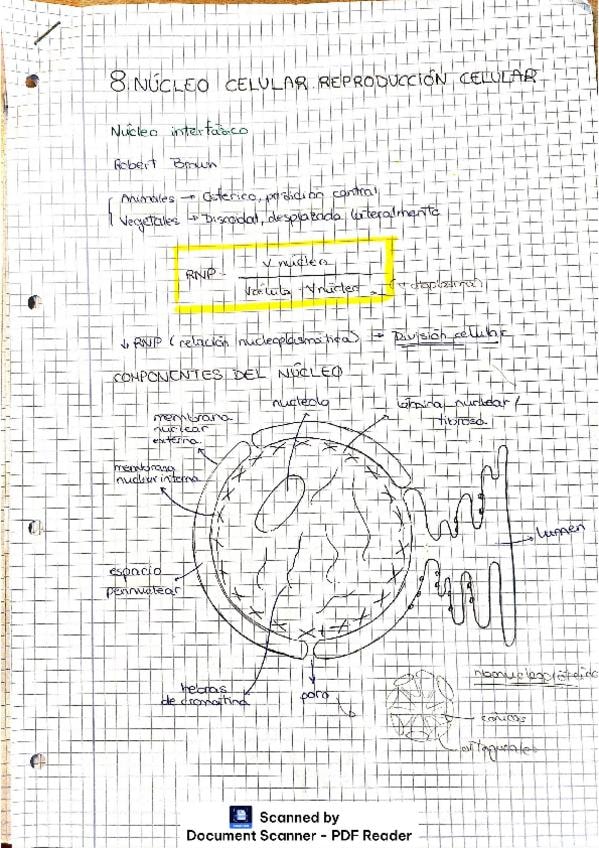 8. NÚCLEO CELULAR. REPRODUCCIÓN CELULAR
Núcleo interfásico
Robert Brown
Animales → Esférico, posición central
Vegetales → Discoidal, desplazado lateralmente
RNP = V núcleo
Vcélula - Vnúcleo
↓ RNP (relación nucleoplasmática) → División celular
COMPONENTES DEL NÚCLEO
nucleolo
lámina nuclear /
fibrosa
membrana
nuclear
externa
membrana
nuclear interna
lumen
espacio
perinuclear
hebras
de cromatina
poro
Scanned by
Document Scanner - PDF Reader